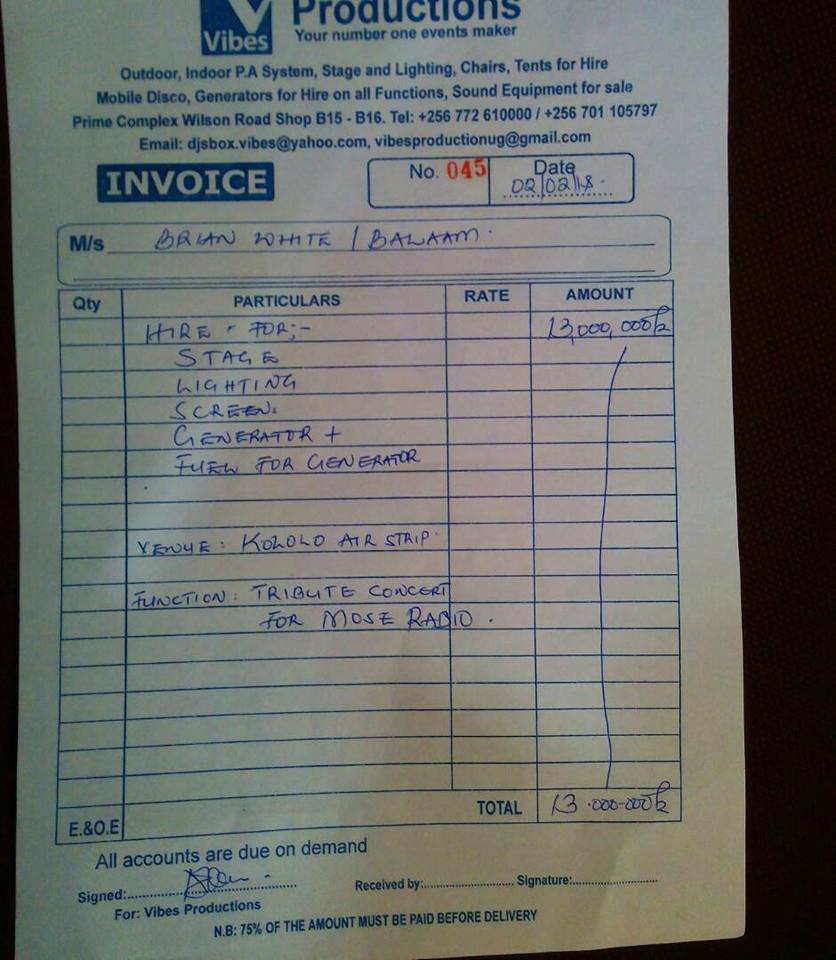 Vibes Productions
Your number one events maker
Outdoor, Indoor P.A System, Stage and Lighting, Chairs, Tents for Hire
Mobile Disco, Generators for Hire on all Functions, Sound Equipment for sale
Prime Complex Wilson Road Shop B15 - B16. Tel: +256 772 610000 / +256 701 105797
Email: djsbox.vibes@yahoo.com, vibesproductionug@gmail.com
INVOICE No. 045 Date
02/02/18.
M/s BRIAN WHITE / BALAAM.
Qty PARTICULARS RATE AMOUNT
HIRE - FOR;- 13,000,000/=
STAGE
LIGHTING
SCREEN.
GENERATOR +
FUEL FOR GENERATOR
VENUE: KOLOLO AIR STRIP.
FUNCTION: TRIBUTE CONCERT
FOR MOSE RADIO.
TOTAL 13.000.000/=
E.&O.E
All accounts are due on demand
Signed: Received by: Signature:
For: Vibes Productions
N.B: 75% OF THE AMOUNT MUST BE PAID BEFORE DELIVERY